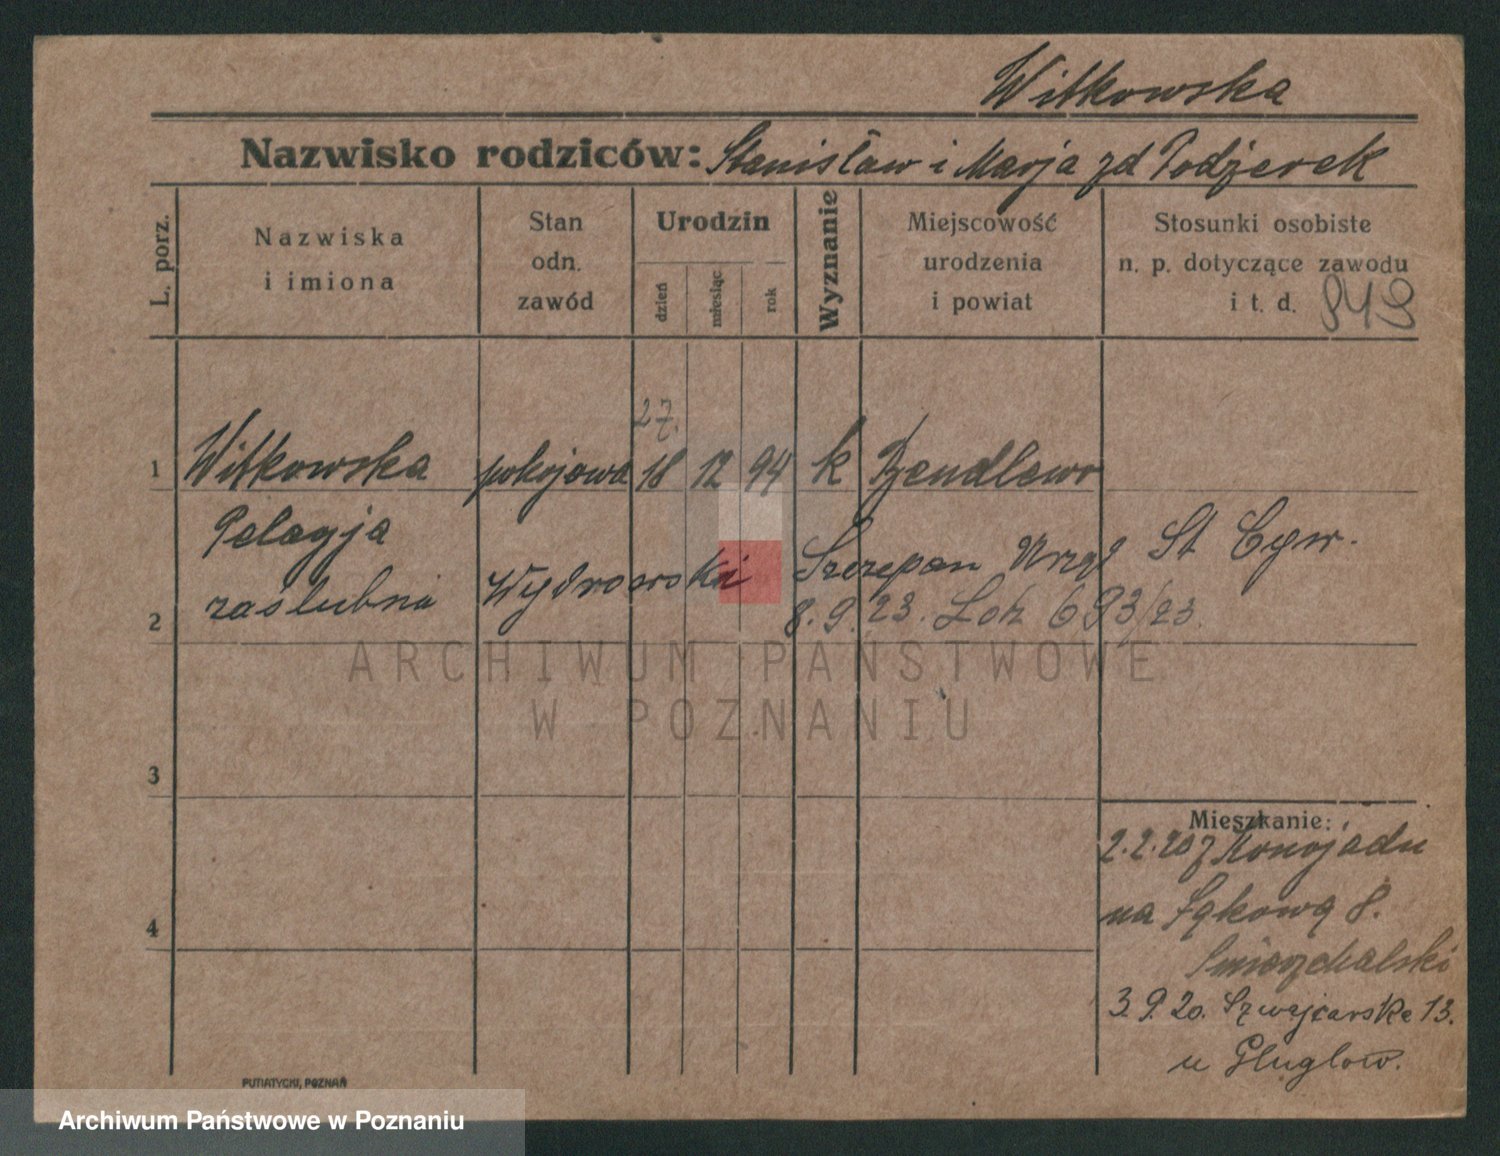 Witkowska
Nazwisko rodziców: Stanisław i Marja zd Podżerek
L. porz.
Nazwiska
i imiona
Stan
odn.
zawód
Urodzin
dzień
miesiąc
rok
Wyznanie
Miejscowość
urodzenia
i powiat
Stosunki osobiste
n. p. dotyczące zawodu
i t. d.
27.
1 Witkowska pokojowa 18 12 94 k Bendlewo
Pelagja
zaślubna Wydrowski Szczepan Urząd St Cyw.
2 8.9.23. Loh 693/23.
3
4
Mieszkanie:
2.2.20 z Konojadu
na Łąkową 8.
3.9.20. Szwejcarska 13.
u
PUTIATYCKI, POZNAŃ
ARCHIWUM PAŃSTWOWE
W POZNANIU
Archiwum Państwowe w Poznaniu